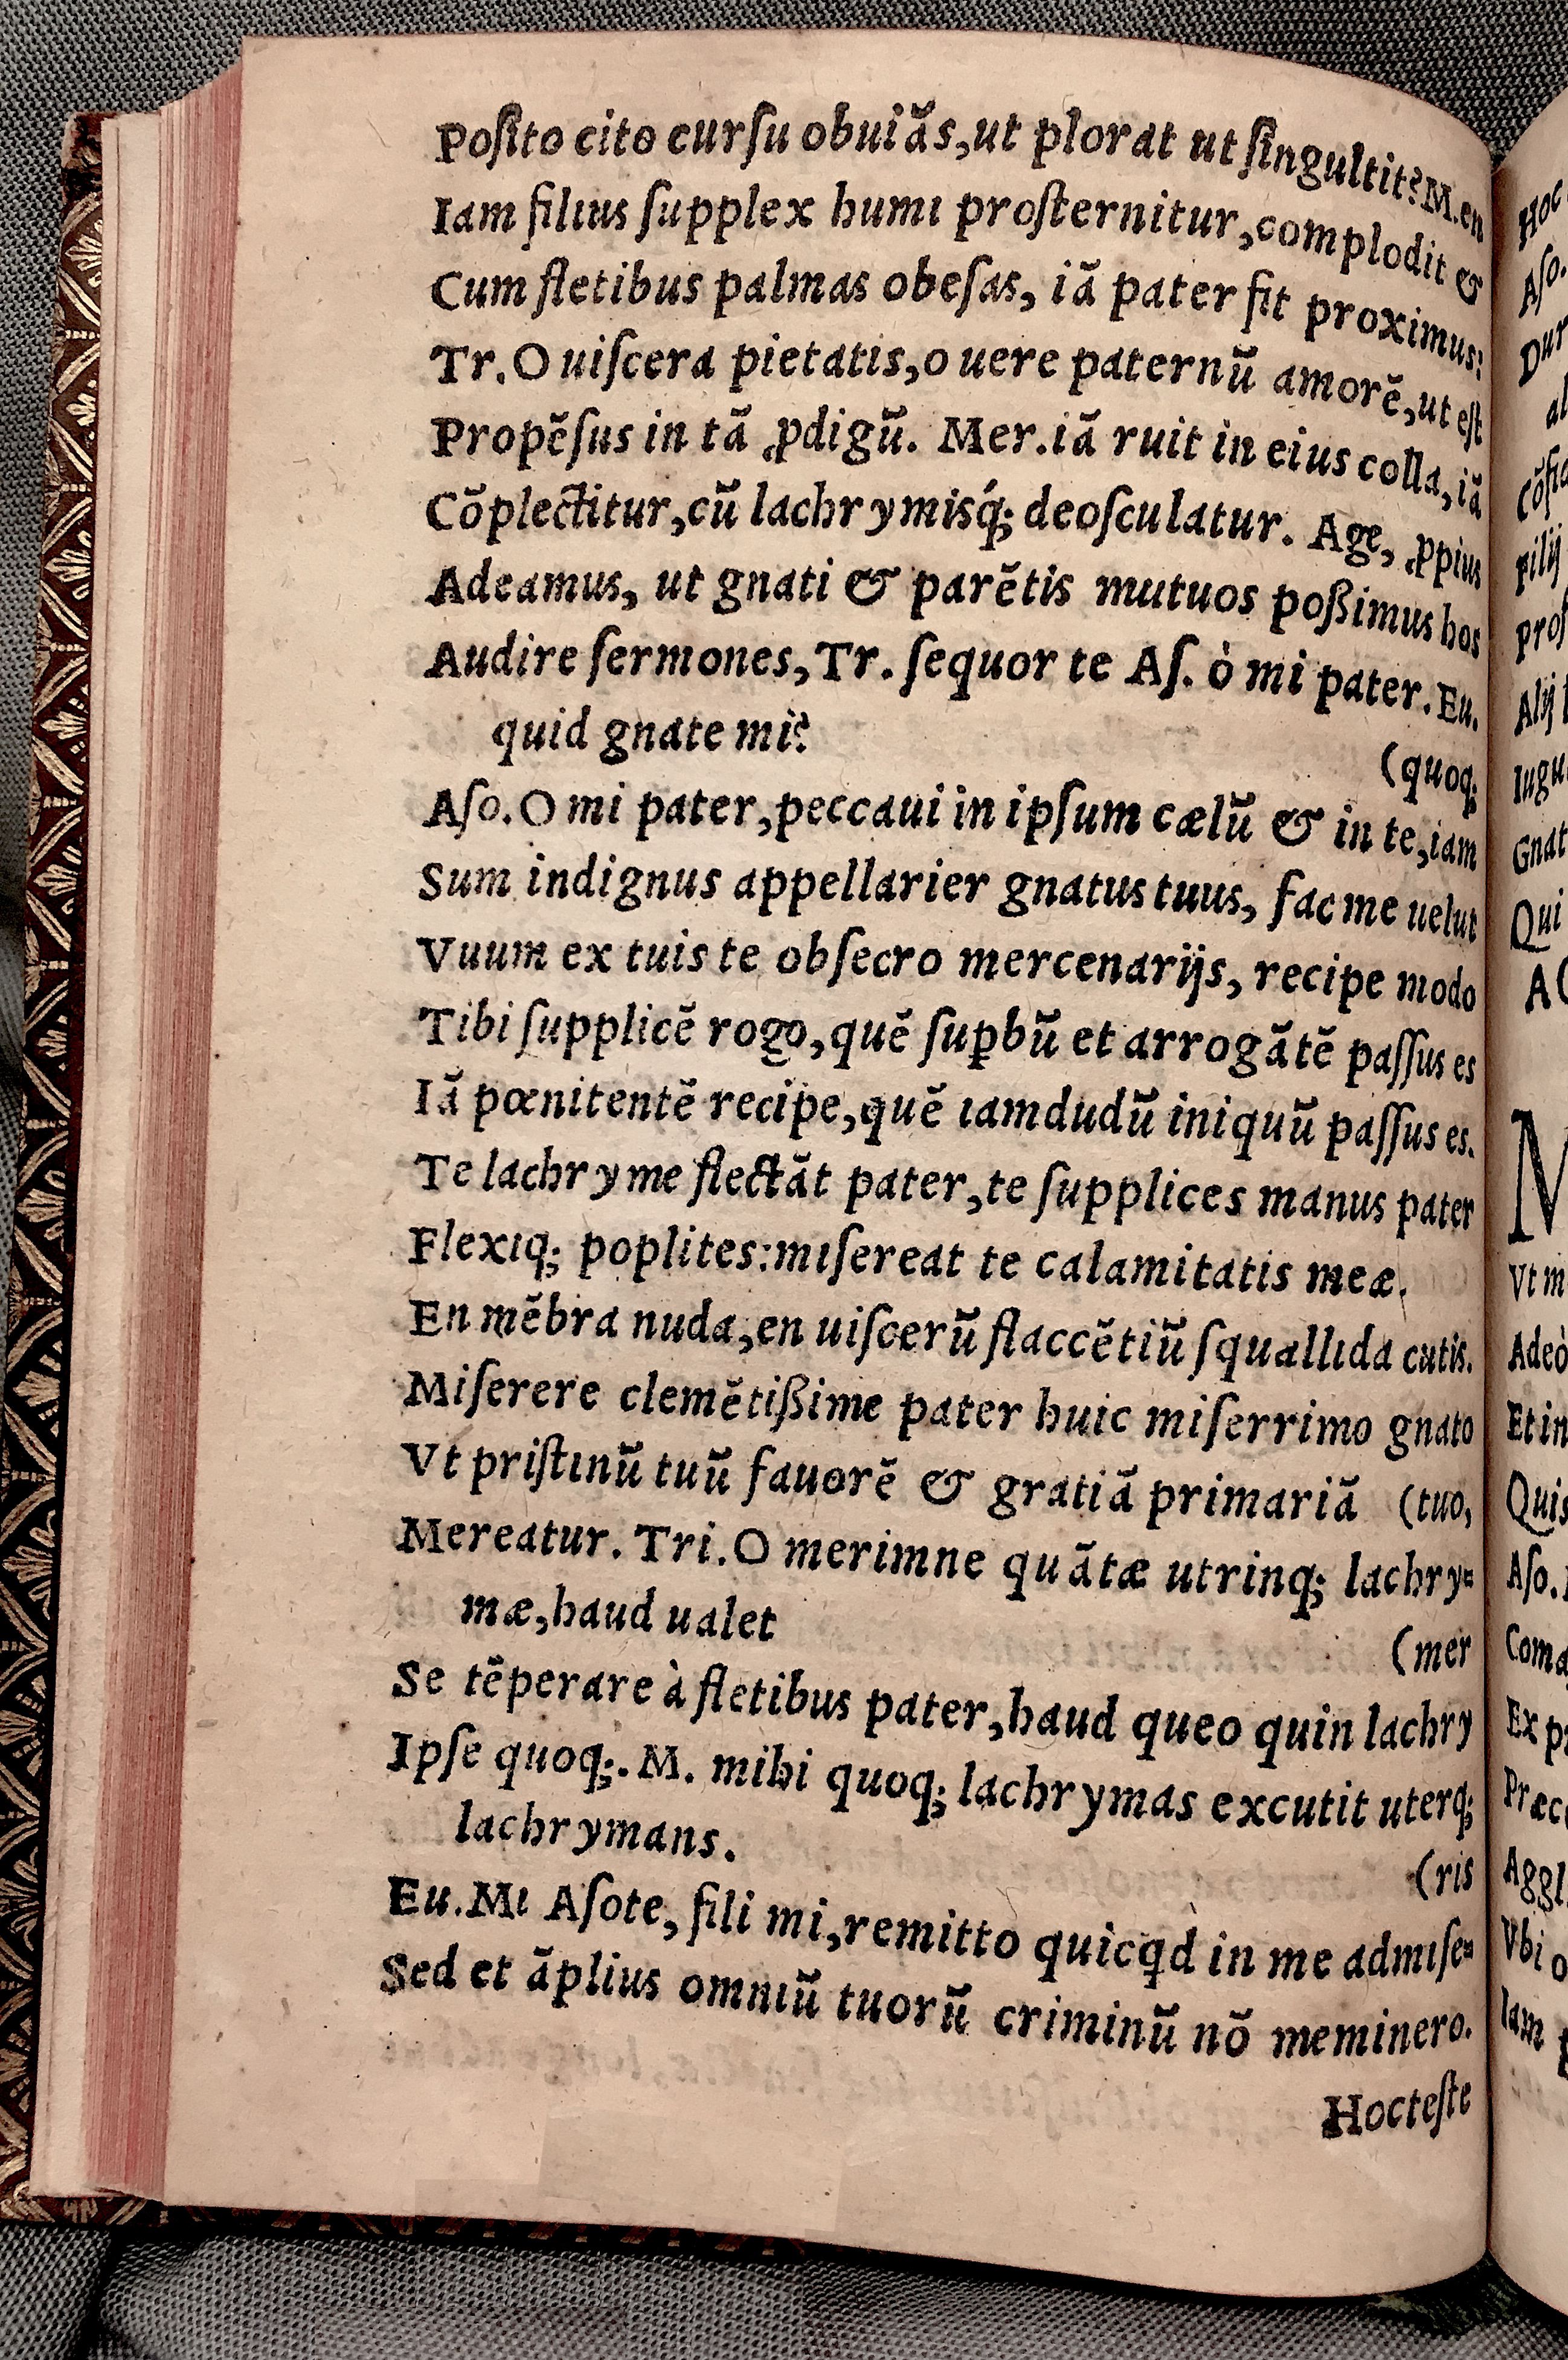 Poſito cito curſu obuiãs,ut plorat ut ſingultit?M.en
Iam filius ſupplex humi proſternitur,complodit &
Cum fletibus palmas obeſas, iã pater fit proximus:
Tr.O uiſcera pietatis,o uere paternũ amorẽ,ut eſt
Propẽſus in tã ꝓdigũ. Mer.iã ruit in eius colla,iã
Cõplectitur,cũ lachrymisq́; deoſculatur. Age, ꝓpius
Adeamus, ut gnati & parẽtis mutuos poßimus hos
Audire ſermones,Tr. ſequor te Aſ. ò mi pater.Eu.
quid gnate mi?
(quoq;
Aſo.O mi pater,peccaui in ipſum cælũ & in te,iam
Sum indignus appellarier gnatus tuus, fac me uelut
Vuum ex tuis te obſecro mercenarijs, recipe modo
Tibi ſupplicẽ rogo,quẽ ſuꝑbũ et arrogãtẽ paſſus es
Iã pœnitentẽ recipe,quẽ iamdudũ iniquũ paſſus es.
Te lachryme flectãt pater,te ſupplices manus pater
Flexiq; poplites:miſereat te calamitatis meæ.
En mẽbra nuda,en uiſcerũ flaccẽtiũ ſquallida cutis.
Miſerere clemẽtißime pater huic miſerrimo gnato
Vt priſtinũ tuũ fauorẽ & gratiã primariã (tuo,
Mereatur. Tri.O merimne quãtæ utrinq; lachry⸗
mæ,haud ualet
(mer
Se tẽperare à fletibus pater,haud queo quin lachry
Ipſe quoq;. M. mihi quoq; lachrymas excutit uterq;
lachrymans.
(ris
Eu.Mi Aſote, fili mi,remitto quicq̀d in me admiſe⸗
Sed et ãplius omniũ tuorũ criminũ nõ meminero.
Hocteſte
Hoc
Aſo.
Dur
al
pilij
proſ
Alij
Iugu
Gnat
Qui
AC
M
Vt m
Adeò
Et in
Quis
Aſo.
Coma
Ex p
Præc
Aggl
Vbi o
Iam